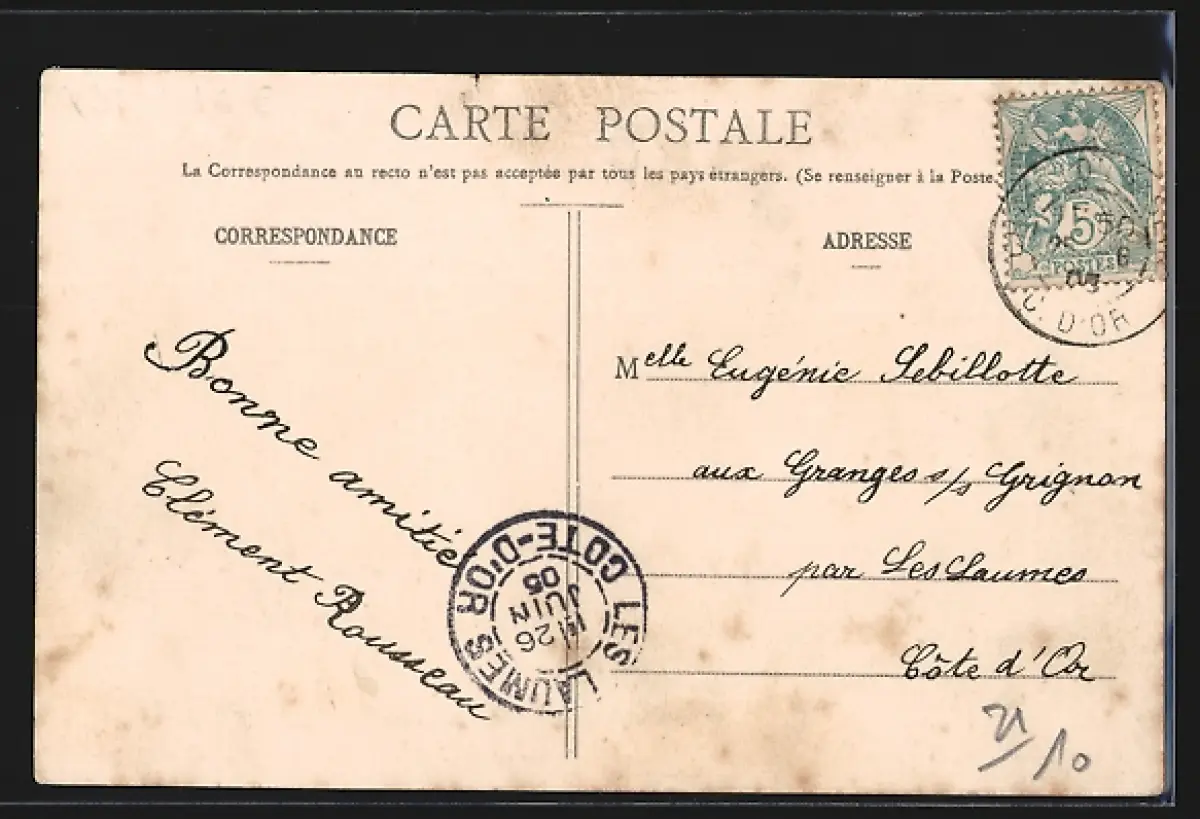 CARTE POSTALE
La Correspondance au recto n'est pas acceptée par tous les pays étrangers. (Se renseigner à la Poste.
CORRESPONDANCE
ADRESSE
5
POSTES
C. D'OR
Bonne amitié
Clément Rousseau
Melle Eugénie Sebillotte
aux Granges s/s Grignon
par Les Laumes
Côte d'Or
LES LAUMES
COTE-D'OR
26
JUIN
05
21/10